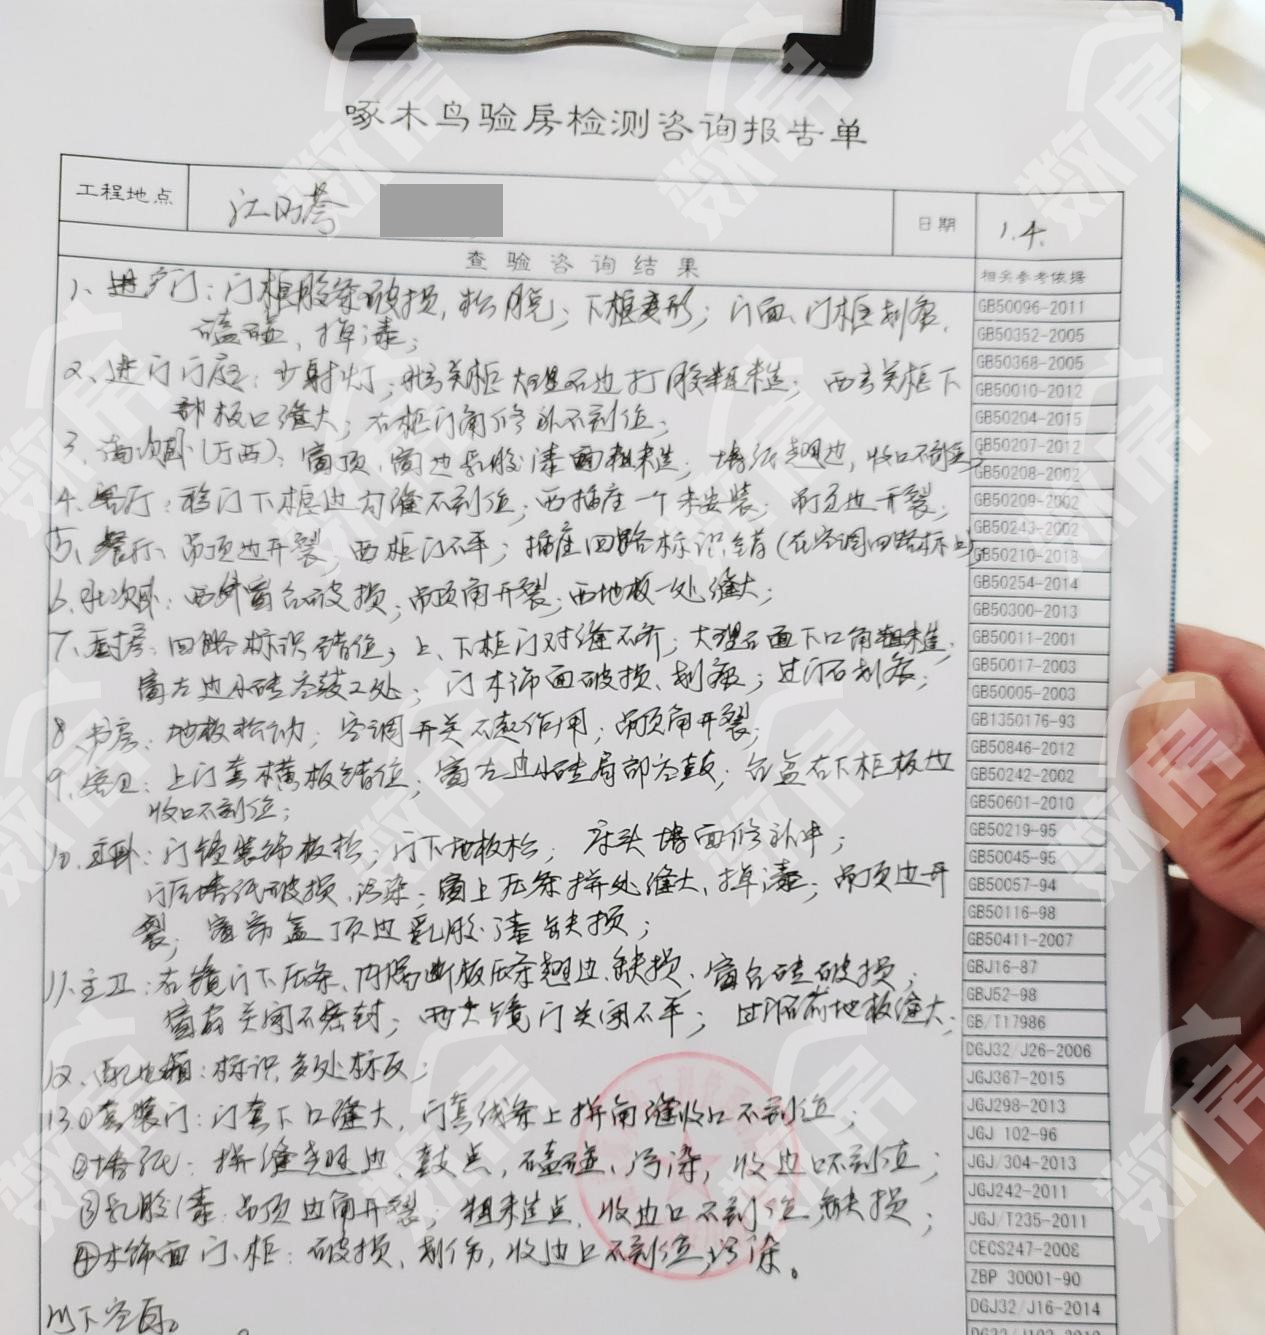 啄木鸟验房检测咨询报告单
工程地点
日期 1.4.
查验咨询结果
相关参考依据
1、进户门：门框胶条破损，松脱；下框变形；门面、门框划痕，
磕碰、掉漆；
2、进门门庭：少射灯；北玄关柜大理石边打胶粗糙；西玄关柜下
部板口缝大；右柜门角修补不到位；
3、南次卧(厅西)：窗顶、窗边乳胶漆面粗糙；墙纸翘边，收口不到位；
4、客厅：移门下框边勾缝不到位；西插座一个未安装；吊顶边开裂；
5、餐厅、吊顶边开裂；西柜门不平；插座回路标识错(在空调回路标上)
6、北次卧：西外窗台破损；吊顶角开裂；西地板一处缝大；
7、厨房：回路标识错位；上、下柜门对缝不齐；大理石面下口角粗糙；
窗左边小砖空鼓2处；门木饰面破损、划痕；过门石划痕；
8、书房：地板松动；空调开关不起作用；吊顶角开裂；
9、客卫：上门套横板错位；窗左边小砖局部空鼓；台盆右下柜板边
收口不到位；
10、主卧：门锁装饰板松；门下地板松；床头墙面修补中；
门后墙纸破损、污染；窗上压条拼处缝大、掉漆；吊顶边开
裂；窗帘盒顶边乳胶漆缺损；
11、主卫：右镜门下压条、内隔断板压条翘边、缺损、窗台砖破损；
窗扇关闭不密封；两头镜门关闭不平；过门石前地板缝大；
12、配电箱：标识多处标反；
13、①套装门：门套下口缝大，门套线条上拼角缝收口不到位；
②墙纸：拼缝翘边、鼓点，磕碰、污染，收边口不到位；
③乳胶漆：吊顶边角开裂，粗糙点、收边口不到位、缺损；
④木饰面门、柜：破损、划伤，收边口不到位，污染。
以下空白。
GB50096-2011
GB50352-2005
GB50368-2005
GB50010-2012
GB50204-2015
GB50207-2012
GB50208-2002
GB50209-2002
GB50243-2002
GB50210-2018
GB50254-2014
GB50300-2013
GB50011-2001
GB50017-2003
GB50005-2003
GB1350176-93
GB50846-2012
GB50242-2002
GB50601-2010
GB50219-95
GB50045-95
GB50057-94
GB50116-98
GB50411-2007
GBJ16-87
GBJ52-98
GB/T17986
DGJ32/J26-2006
JGJ367-2015
JGJ298-2013
JGJ 102-96
JGJ/304-2013
JGJ242-2011
JGJ/T235-2011
CECS247-2008
ZBP 30001-90
DGJ32/J16-2014